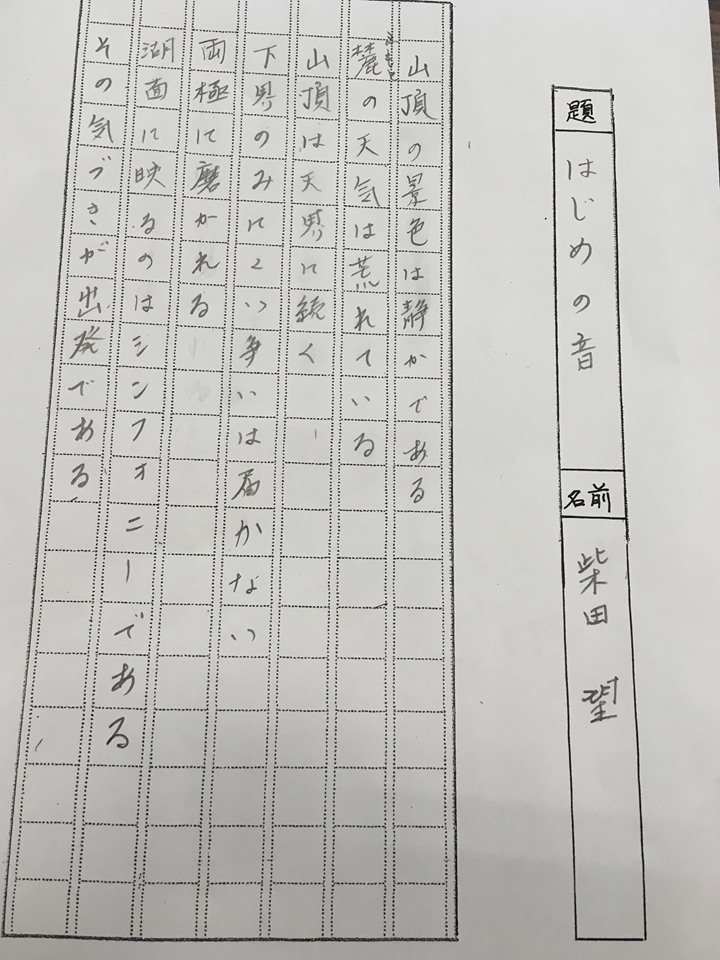 題 はじめの音
名前 柴田 望
山頂の景色は静かである
麓の天気は荒れている
山頂は天界に続く
下界のみにくい争いは届かない
両極に磨かれる
湖面に映るのはシンフォニーである
その気づきが出発である